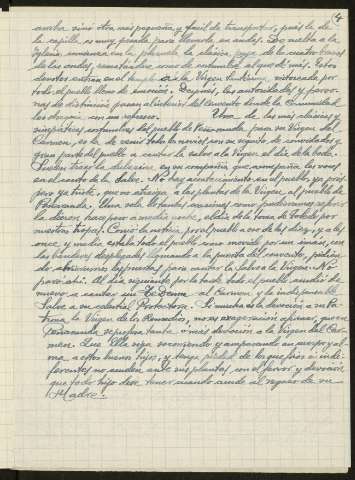 ancha, sino otra más pequeña y fácil de transportar, pués la de
la capilla, es muy pesada para llevarla en andas. De vuelta a la
Iglesia, comienza en la plazuela la clásica puja de los cuatro brazos
de las andas, rematándose como de costumbre al que dé más. Estos
devotos entran en el templo a la Virgen Santísima, vitoreada por
todo el pueblo lleno de emoción. Después, las autoridades y perso-
nas de distinción pasan al interior del Convento donde la Comunidad
les obsequia con un refresco. Una de las más clásicas y
simpáticas costumbres del pueblo de Peñaranda, para su Virgen del
Carmen, es la de venir todos los novios con su séquito de convidados y
gran parte del pueblo a cantar la salve a la Virgen, el día de la boda.
Suelen traer la dulzaina en su compañía que acompaña las voces
en el canto de la Salve. No hay acontecimiento en el pueblo, ya gozoso
pero ya triste, que no atraiga a las plantas de la Virgen, al pueblo de
Peñaranda. Una salve bastante ansiosa como pudiéramos supo-
la dieron hace poco a media noche, el día de la toma de Toledo por
nuestras tropas. Corrió la noticia por el pueblo a eso de las diez, y a las
once, y media estaba todo el pueblo como movido por un imán, con
las banderas desplegadas llamando a la puerta del convento, pidien-
do abriésemos las puertas para cantar la Salve a la Virgen. No
paró ahí. Al día siguiente por la tarde todo el pueblo acudió de
nuevo a cantar un Te Deum al Carmen, y la indispensable
Salve a su celestial Protectora. Si mucha es la devoción a su Pa-
trona la Virgen de los Remedios, no es exageración afirmar, que en
Peñaranda se profesa tanta o más devoción a la Virgen del Car-
men. Que Ella siga socorriendo y amparando en cuerpo y al-
ma a estos buenos hijos, y tenga piedad de los que fríos e indi-
ferentes no acuden ante sus plantas, con el fervor y devoción
que todo hijo debe tener cuando acude al regazo de su
Madre.